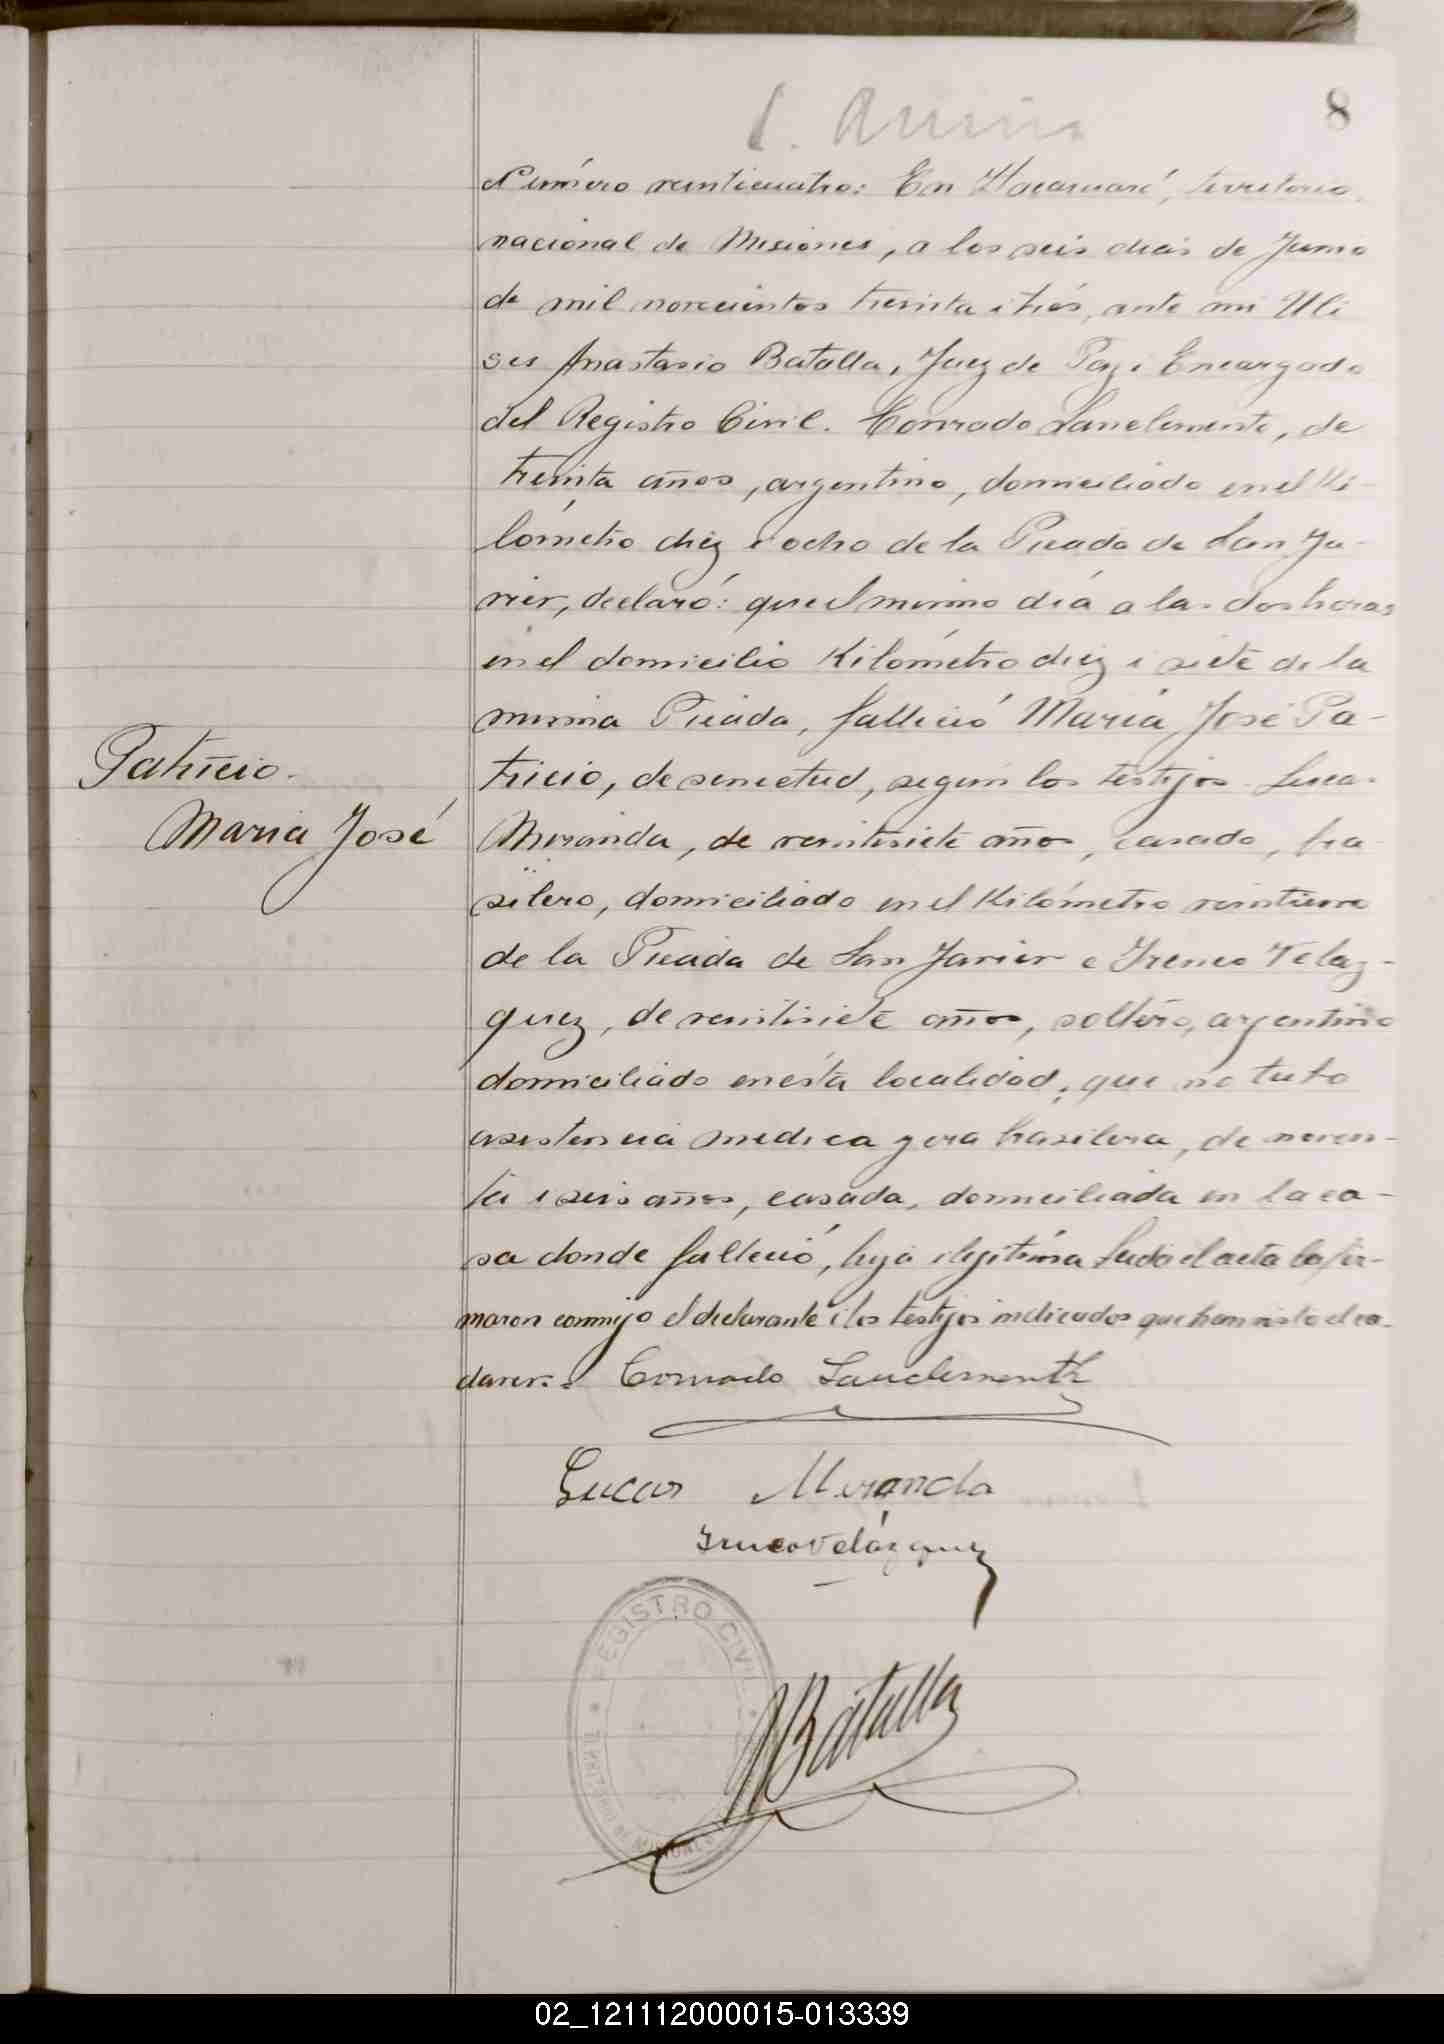 8
Número veinticuatro: En Itacaruaré, territorio
nacional de Misiones, a los seis dias de Junio
de mil novecientos treinta i trés, ante mi Uli
ses Anastasio Batalla, Juez de Paz i Encargado
del Registro Civil. Conrado Sanclemente, de
treinta años, argentino, domiciliado en el Ki-
lómetro diez i ocho de la Picada de San Ja-
vier, declaró: que el mismo día a las dos horas
en el domicilio Kilómetro diez i siete de la
misma Picada, falleció María José Pa-
tricio, de senectud, según los testijos Lucas
Miranda, de veintisiete años, casado, bra
silero, domiciliado en el Kilómetro
de la Picada de San Javier e Ireneo Velaz-
quez, de veintisiete años, soltero, argentino
domiciliado en ésta localidad, que no tubo
asistencia medica y era brasilera, de noven-
ta i seis años, casada, domiciliada en la ca-
sa donde falleció, hija ilejitima Leida el acta la fir-
maron conmigo el declarante i los testijos indicados que han visto el ca-
daver.
Conrado Sanclemente
Patricio.
Maria José
Lucas Miranda
Ireneo Velázquez
REGISTRO CIVIL
TERRITORIO DE MISIONES
Batalla
02_121112000015-013339